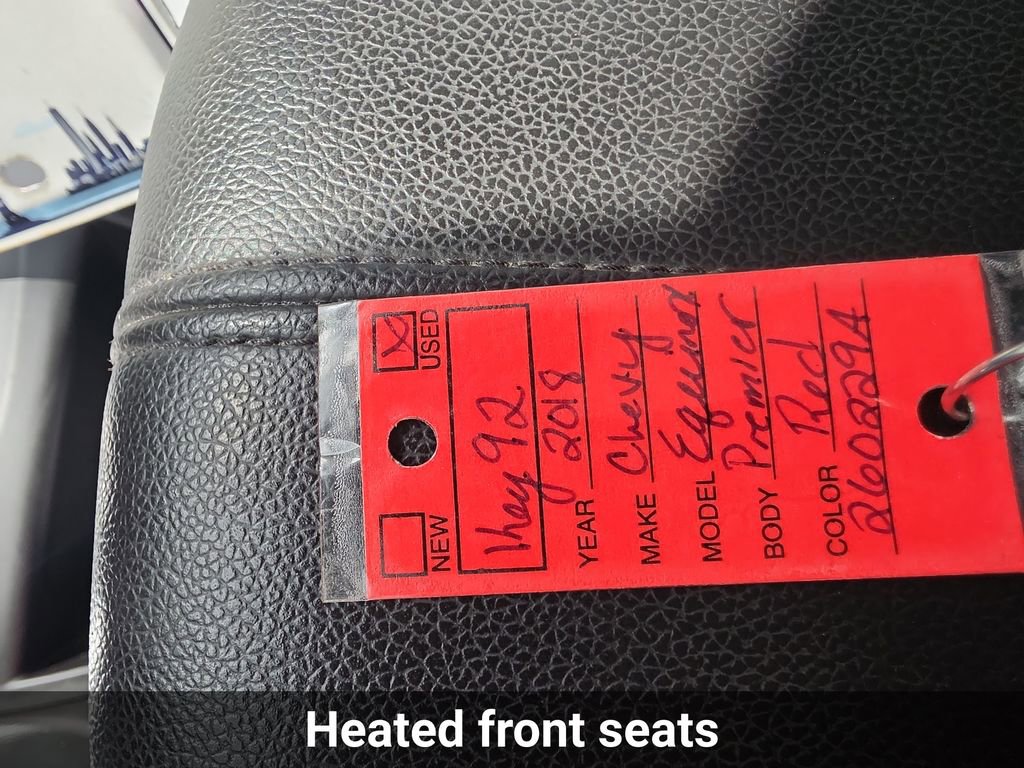 USED
NEW
Key 92
YEAR 2018
MAKE Chevy
MODEL Equinox
BODY Premier
COLOR Red
260229A
Heated front seats